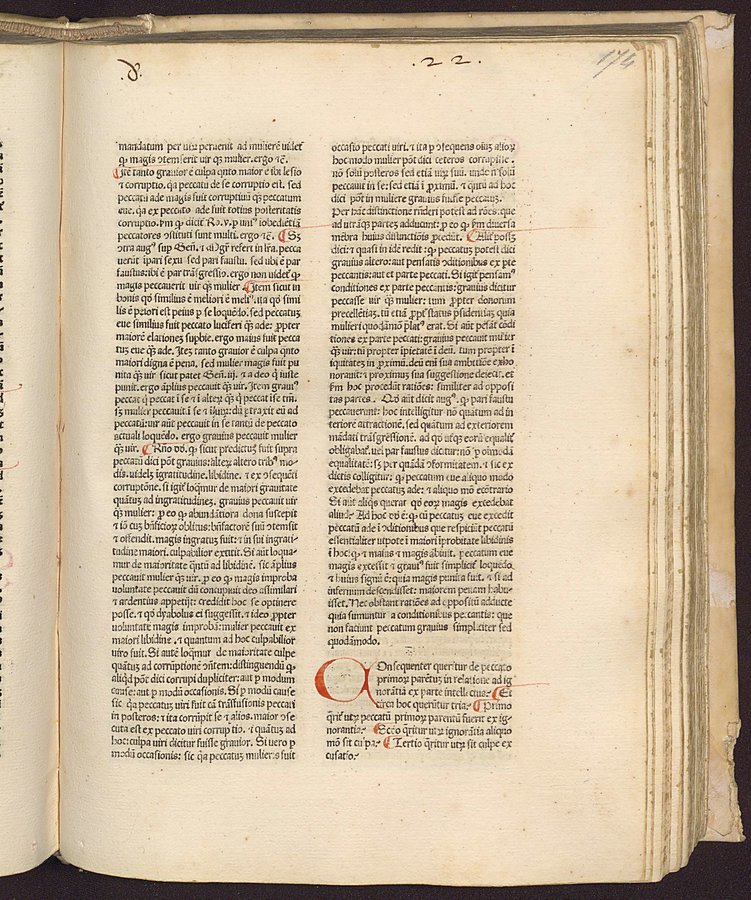 .d.
.22.
174
mandatum per virū peruenit ad mulierē videt
magis ↄtemserit vir mulier. ergo
Itē tanto grauior ē culpa qnto maior ē ibi lesio
⁊ corruptio. qa peccatū de se corruptio est. sed
peccatū ade magis fuit corruptiuū peccatum
eue. qa ex peccato ade fuit totius posteritatis
corruptio. dicit Ro. v. p unī iobedientiā
peccatores ↄstituti sunt multi. ergo
ↄtra aug sup Gen. ⁊ refert in pecca
uerūt ipari sexu. sed pari fastu. sed vbi ē par
fastus: ibi ē par trāsgressio. ergo non videt
magis peccauerit vir mulier. Item sicut in
bonis qō similius ē meliori ē ita qō simi
lis ē priori est peius p se loquēdo. sed peccatuȝ
eue similius fuit peccato luciferi ade: ꝓpter
maiorē elationeȝ supbie. ergo maius fuit pecca
tuȝ eue ade. Iteȝ tanto grauior ē culpa qnto
maiori digna ē pena. sed mulier magis fuit pu
nita vir sicut patet Gen. iij. ⁊ a deo iuste
punit. ergo āplius peccauit vir. Item
peccat peccat ī se ⁊ ī alterȝ peccat ī se
mulier peccauit ī se ⁊ ī dū ꝓtraxit eū ad
peccatū: vir aūt peccauit in se tantū de peccato
actuali loquēdo. ergo grauius peccauit mulier
vir. sicut predictuȝ fuit supra
peccatū dici pōt grauius altero mo
dis. videlȝ igratitudine. libidine. ⁊ ex ↄsequēti
corruptōne. si igit loqmur de maiori grauitate
quātuȝ ad ingratitudineȝ. grauius peccauit vir
mulier: p eo abundātiora dona suscepit
⁊ iō cuȝ oblitus: bnfactorē suū ↄtemsit
⁊ offendit. magis ingratus fuit: ⁊ in sui ingrati
tudine maiori. culpabilior extitit. Si aūt loqua
mur de maioritate qntū ad libidinē. sic āplius
peccauit mulier vir. p eo magis improba
voluntate peccauit dū concupiuit deo assimilari
⁊ ardentius appetijt: credidit hoc se optinere
posse. ⁊ qō dyabolus ei suggessit. ⁊ ideo ꝓpter
voluntatē magis improbā: mulier peccauit ex
maiori libidine. ⁊ quantum ad hoc culpabilior
viro fuit. Si autē loqmur de maioritate culpe
quātuȝ ad corruptionē distinguendū
aliqd pōt dici corrupi dupliciter: aut p modum
cause: aut p modū occasionis. Si p modū cause
sic qa peccatuȝ viri fuit cā trāsfusionis peccati
in posteros: ⁊ ita corrūpit se ⁊ alios. maior ↄse
cuta est ex peccato viri corruptio. ⁊ quātuȝ ad
hoc: culpa viri dicitur fuisse grauior. Si vero p
modū occasionis: sic qa peccatuȝ mulieris fuit
occasio peccati viri. ⁊ ita p ↄsequens alioȝ
hoc modo mulier pōt dici ceteros corrupisse.
nō solū posteros sed etiā virȝ suū. vnde nō solū
peccauit in se: sed etiā ī ꝓximū. ⁊ qntū ad hoc
dici pōt in muliere grauius fuisse peccatuȝ.
Per hāc distinctione rñderi potest ad rōes: que
ad vtrāqȝ parteȝ adducunt: p eo diuersa
mēbra huius distinctiōis ꝓcedūt.
dici: ⁊ quasi in idē redit: peccatuȝ potest dici
grauius altero: aut pensatis ↄditionibus ex pte
peccantis: aut ex parte peccati. Si igit pensam
conditiones ex parte peccantis: grauius dicitur
peccasse vir mulier: tum ꝓpter donorum
precellētiaȝ. tū etiā ꝓpt status psidentiaȝ quia
mulieri quodāmō erat. Si aūt pēsāt cōdi
tiones ex parte peccati: grauius peccauit mulier
vir: tū propter ipietatē ī deū. tum propter i
iquitateȝ in ꝓximū. deū eni sua ambitiōe exho
norauit: ⁊ proximuȝ sua suggestione deiecit. et
hoc procedūt ratiōes: similiter ad opposi
tas partes. Qō aūt dicit aug. pari fastu
peccauerunt: hoc intelligitur nō quatum ad in
teriorē attractione. sed quātum ad exteriorem
mādati trāsgressionē. ad qō vtqȝ eorū equalit
obligabat. uel par fastus dicitur: nō p omōdā
equalitatē: sȝ per quādā ↄformitatem. ⁊ sic ex
dictis colligitur: peccatum eue aliquo modo
excedebat peccatuȝ ade: ⁊ aliquo mō ecōtrario
Si aūt aliqs querat qō eorȝ magis excedebat
aliud? Ad hoc ē: cū peccatuȝ eue excedit
peccatū ade ī ↄditionibus que respiciūt peccatū
essentialiter vtpote ī maiori īprobitate libidinis
ī hoc: ⁊ maius ⁊ magis abūit. peccatum eue
magis excessit ⁊ fuit simplicit loquēdo.
⁊ huius signū ē: quia magis punita fuit. ⁊ si ad
infernum descendisset: maiorem penam habu
isset. Nec obstant ratiōes ad oppositū adducte
quia sumuntur a conditionibus peccantis: que
non faciunt peccatum grauius simpliciter sed
quodāmodo.
COnsequenter queritur de peccato
primoȝ parētuȝ in relatione ad ig
norātiā ex parte intellectus. Et
circa hoc querūtur tria. Primo
vtȝ peccatū primoȝ parentū fuerit ex ig
norantia. Secdo qritur vtȝ ignorātia aliquo
mō sit culpa. Tertio qritur vtȝ sit culpe ex
cusatio.